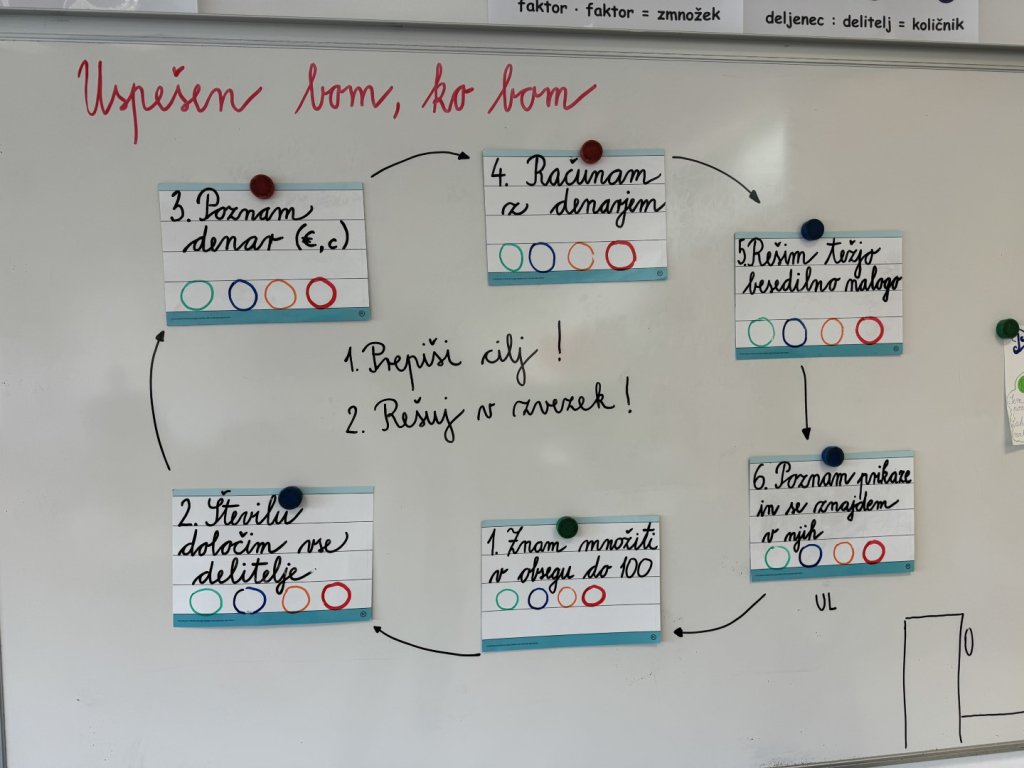 faktor · faktor = zmnožek
deljenec : delitelj = količnik
Uspešen bom, ko bom
3. Poznam
denar (€, c)
4. Računam
z denarjem
5. Rešim težjo
besedilno nalogo
1. Prepiši cilj!
2. Rešuj v zvezek!
2. Številu
določim vse
delitelje
1. Znam množiti
v obsegu do 100
6. Poznam prikaze
in se znajdem
v njih
UL